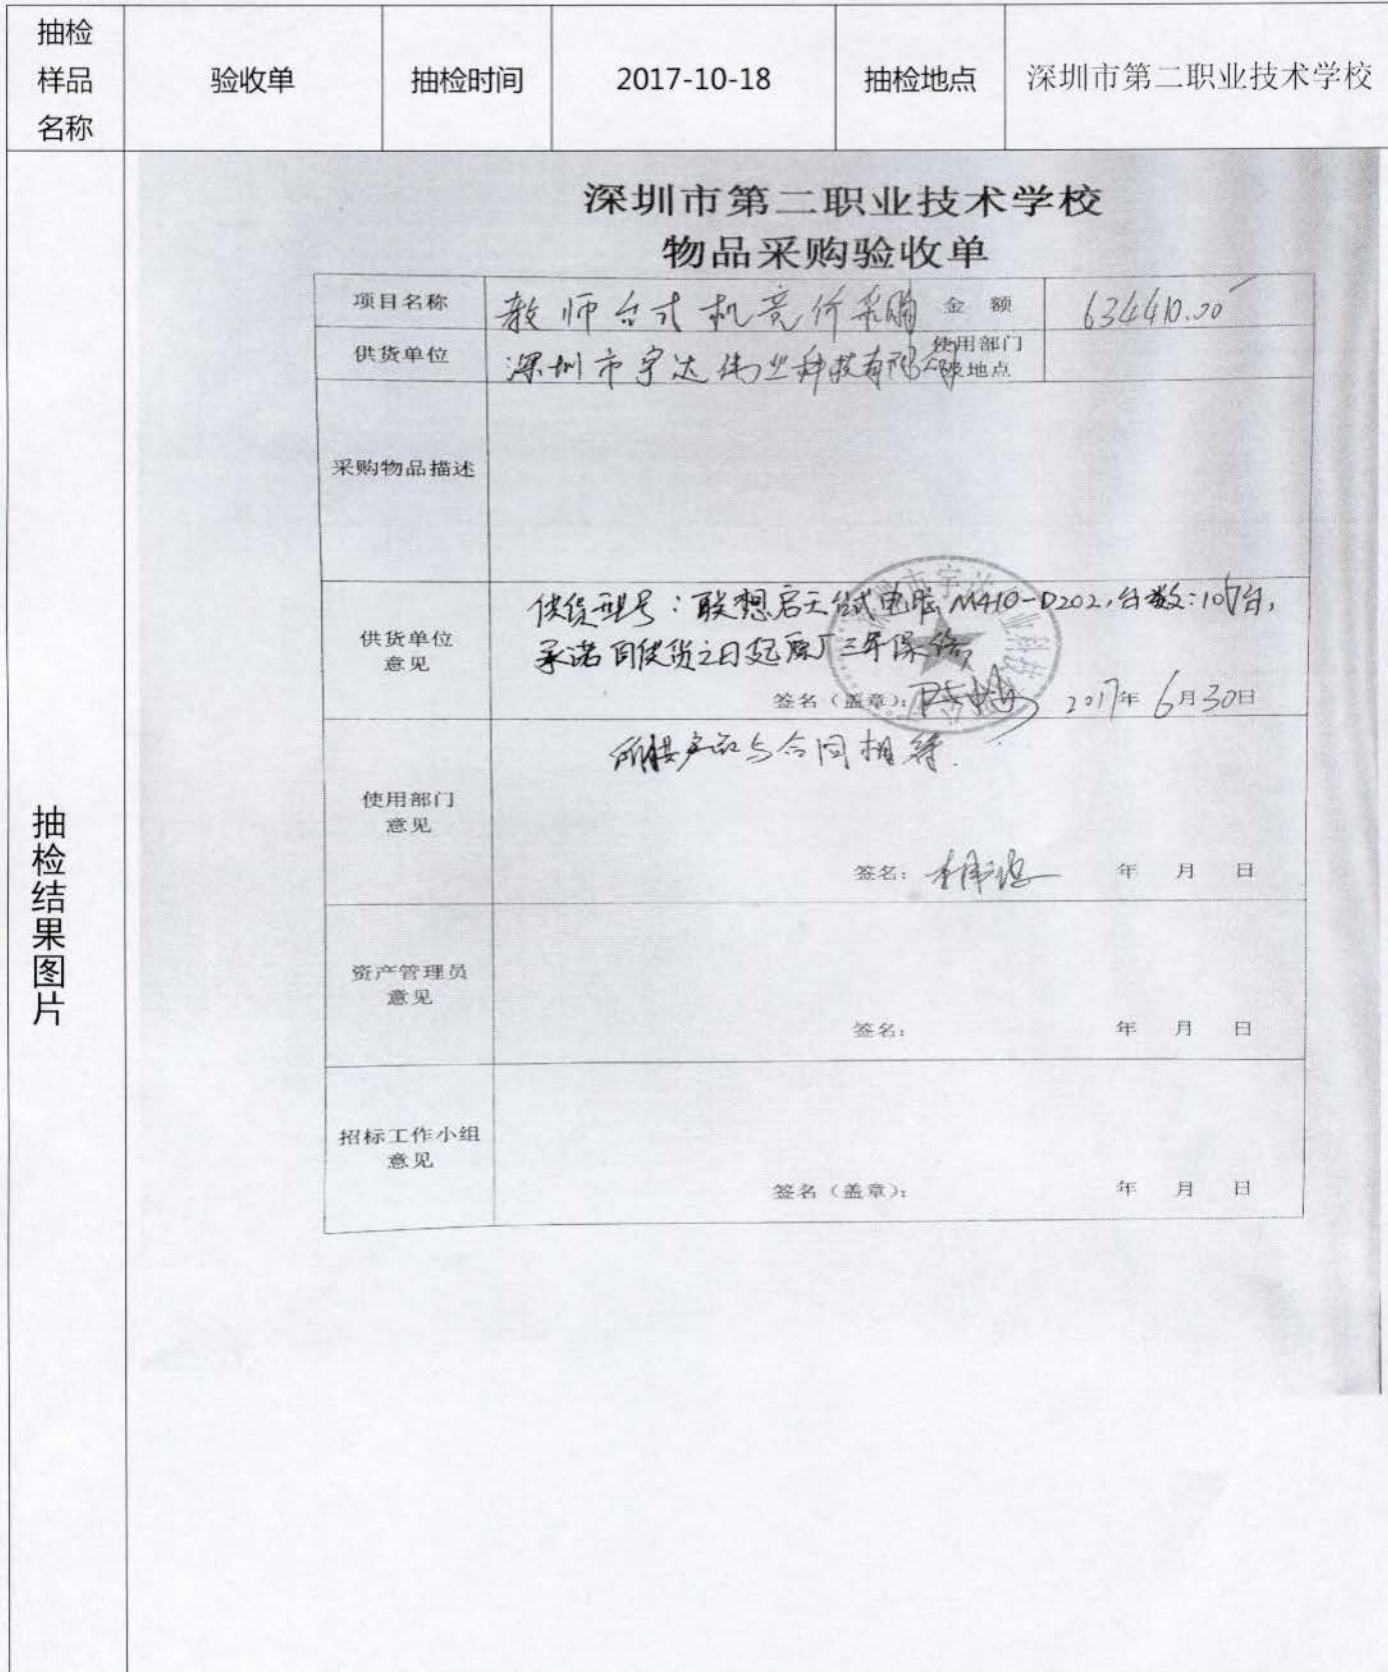 抽检样品名称 验收单 抽检时间 2017-10-18 抽检地点 深圳市第二职业技术学校
抽检结果图片
深圳市第二职业技术学校
物品采购验收单
项目名称 教师台式机竞价采购 金额 634410.00
供货单位 深圳市宇达伟业科技有限公司 使用部门及地点
采购物品描述
供货单位意见
供货型号：联想启天台式电脑 M410-D202,台数:107台,
承诺自供货之日起原厂三年保修
签名（盖章）： 2017年 6月30日
使用部门意见
所供产品与合同相符.
签名： 年 月 日
资产管理员意见
签名： 年 月 日
招标工作小组意见
签名（盖章）： 年 月 日